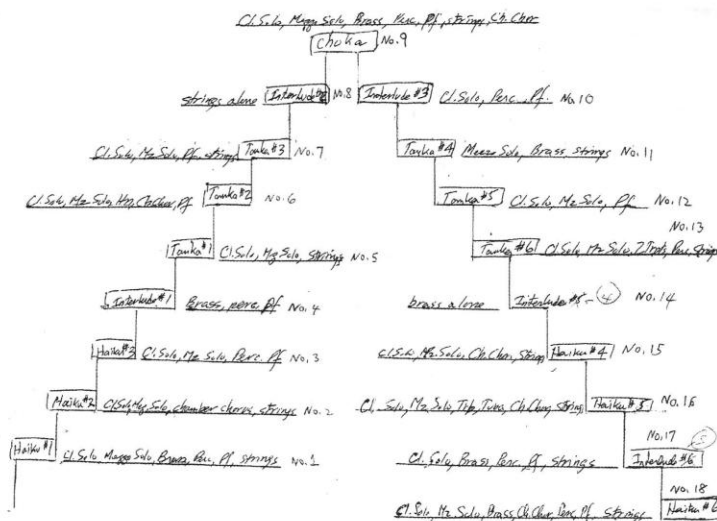 Cl. Solo, Mezzo Solo, Brass, Perc, Pf, strings, Ch. Chor
Choka No. 9
strings alone Interlude #2 No. 8 Interlude #3 Cl. Solo, Perc, Pf. No. 10
Cl. Solo, Mz Solo, Pf, strings Tanka #3 No. 7 Tanka #4 Mezzo Solo, Brass, strings No. 11
Cl. Solo, Mz Solo, Hn, Ch. Chor, Pf Tanka #2 No. 6 Tanka #5 Cl. Solo, Mz Solo, Pf No. 12
No. 13
Tanka #1 Cl. Solo, Mz Solo, strings No. 5 Tanka #6 Cl. Solo, Mz Solo, 2 Trpts, Perc, Strings
Interlude #1 Brass, perc, Pf No. 4 brass alone Interlude #5 - 4 No. 14
Haiku #3 Cl. Solo, Mz Solo, Perc. Pf No. 3 Cl. Solo, Mz Solo, Ch. Chor, Strings Haiku #4 No. 15
Haiku #2 Cl Solo, Mz Solo, chamber chorus, strings No. 2 Cl. Solo, Mz Solo, Trp, Tuba, Ch. Chor, Strings Haiku #5 No. 16
No. 17 5
Haiku #1 Cl. Solo Mezzo Solo, Brass, Perc, Pf, strings No. 1 Cl. Solo, Brass, Perc, Pf, strings Interlude #6
No. 18
Cl. Solo, Mz Solo, Brass, Ch. Chor, Perc, Pf. strings Haiku #6